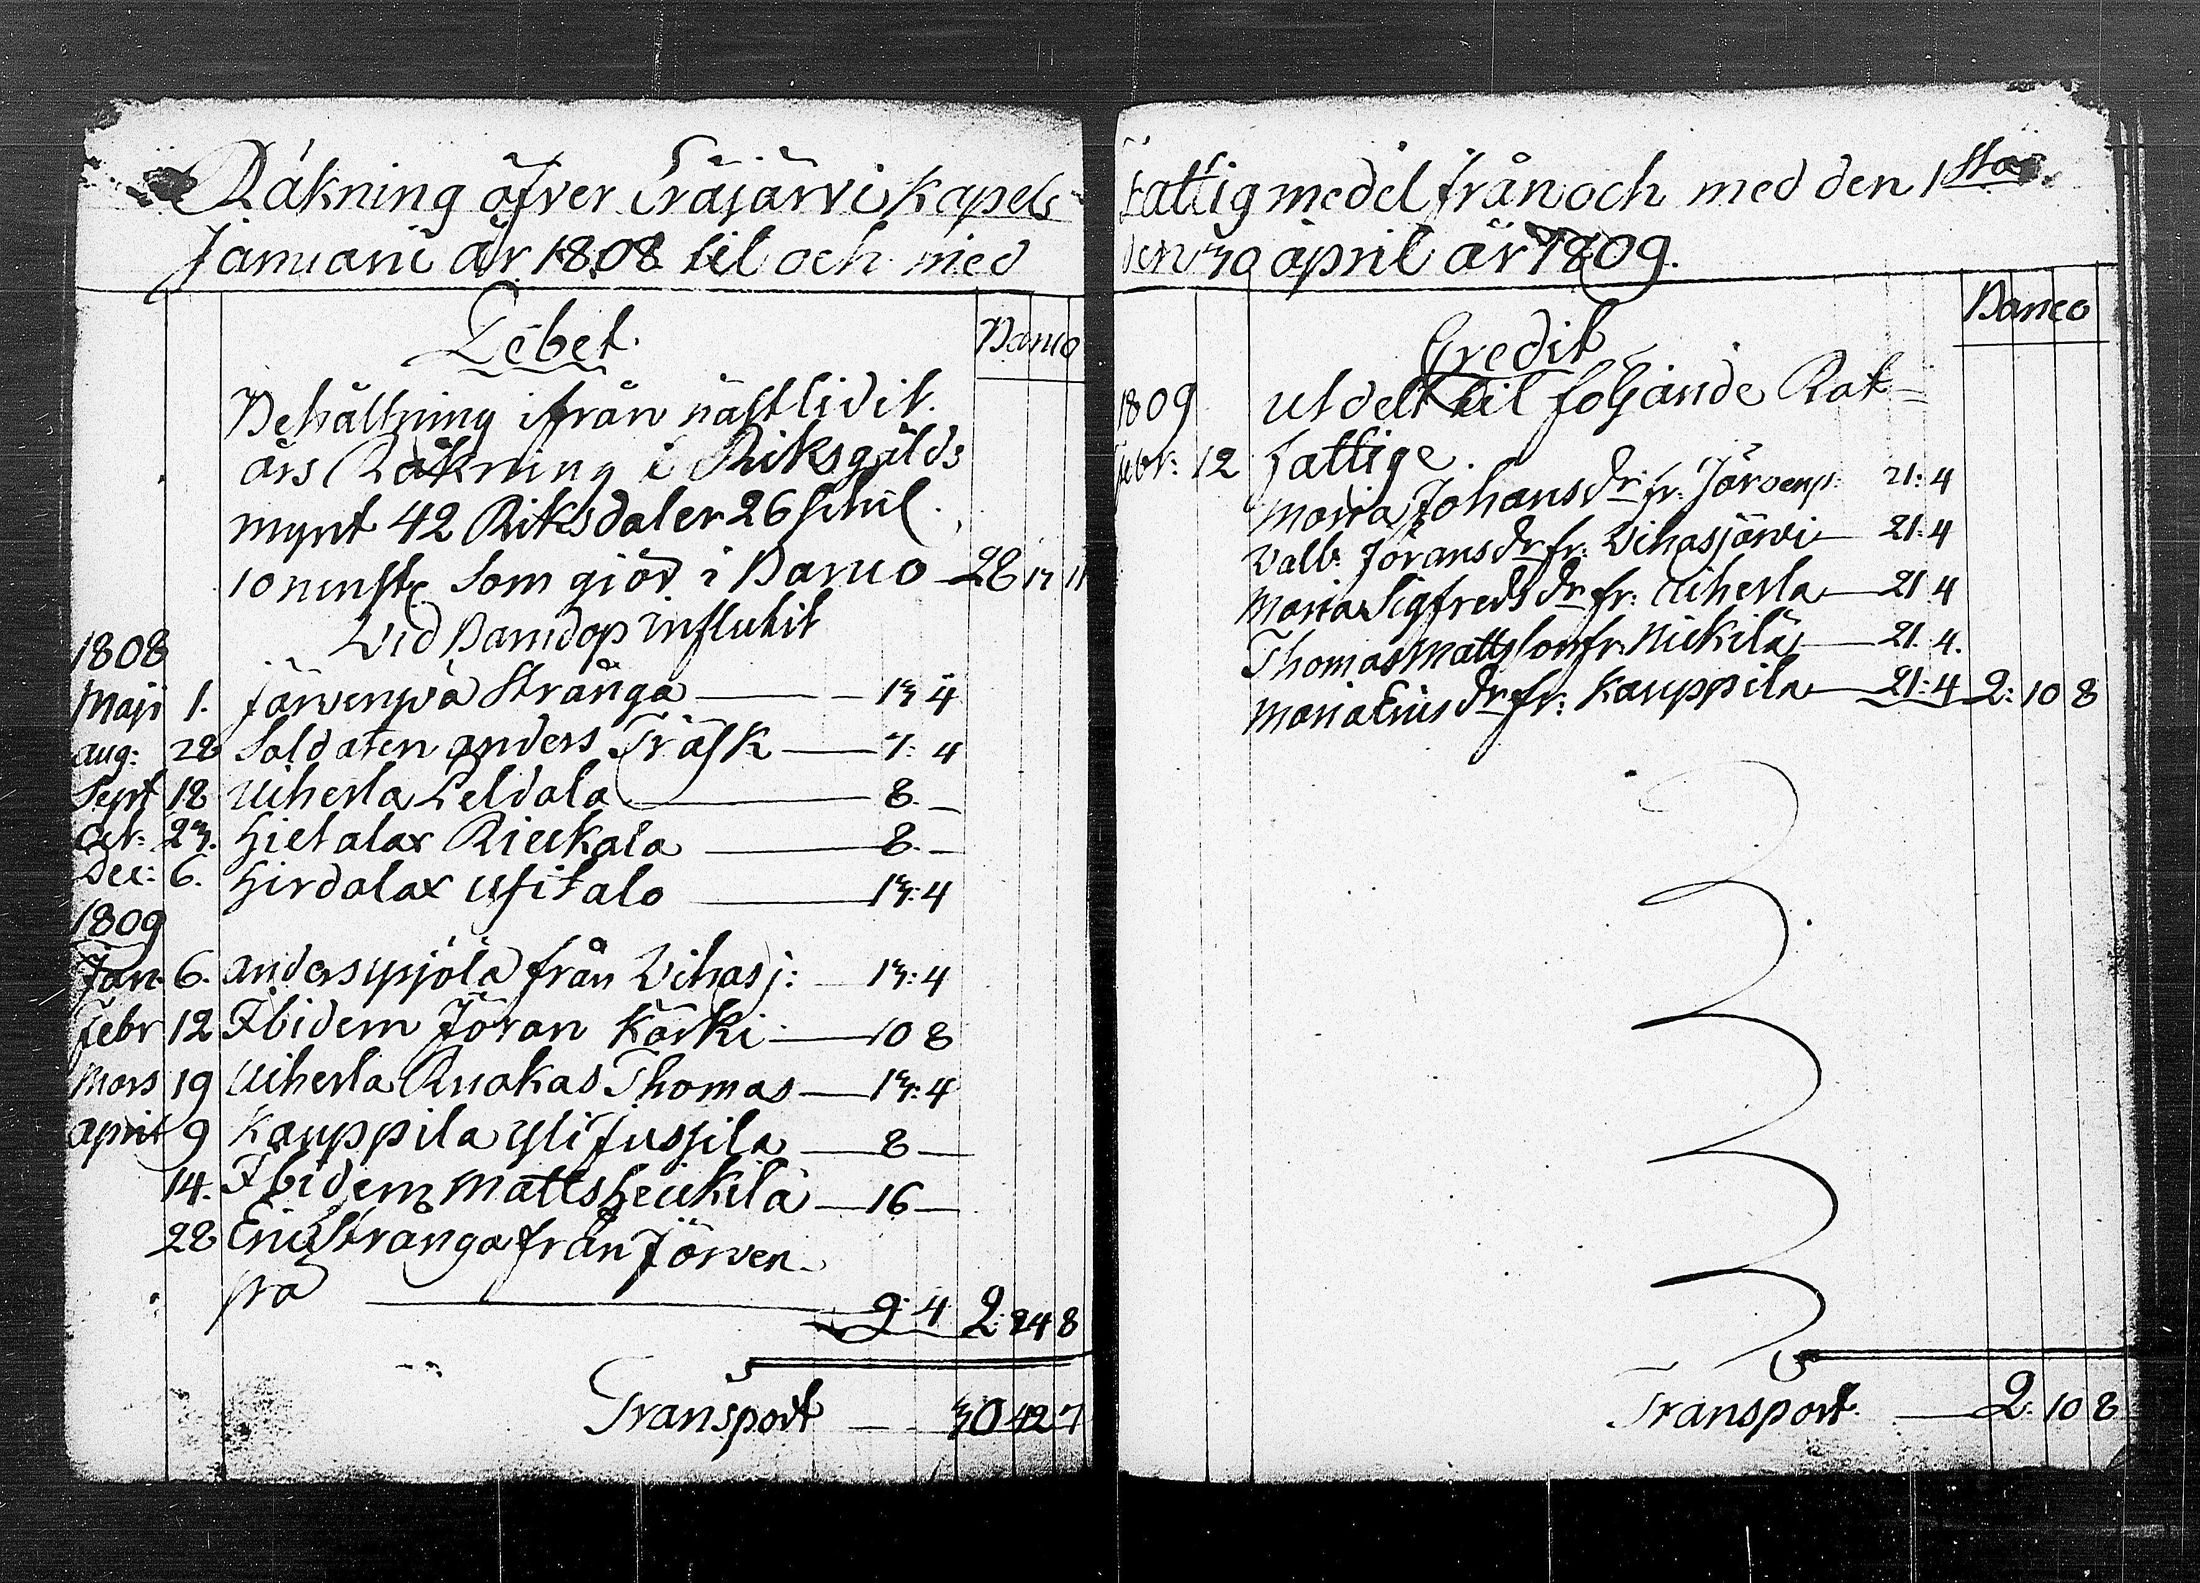 Räkning öfver Träjärvi Kapels
Januarii år 1808 til och med
Debet. Banco
Behållning ifrån nästlidit
års Räkning i Riksgälds
mynt 42 Riksdaler 26 schil.
10 runst: som giör i Banco 28 17 11
Vid Barndop influtit
1808
Maji 1. Järvenpää Stränga 13 4
aug: 28 Soldaten anders Träsk 7: 4
Sept 18 Uiherla Peldala 8. —
Oct: 23. Hietalax Rieckala 8. —
Dec: 6. Hirdalax Usitalo 13: 4
1809
Jan. 6. anders ypjölä från Vihasj: 13: 4
Febr 12 Ibidem Jöran Kärki 10 8
Mars 19 Uiherla Ruokas Thomas 13: 4
april 9 Kauppila yli Jussila 8 —
14. Ibidem Matts Heickilä 16 —
28 Eric Stränga från Järven
pää 9: 4 2: 24 8
Transport 30 42 7
Fattigmedel från och med den 1sta
den 30 april år 1809.
Credit Banco
1809 utdelt til följande Rot-
Febr: 12 fattige.
Maria Johansdr fr: Järvenp: 21: 4
Valb: Jöransdr fr: Vihasjärvi 21: 4
Maria Sigfredsdr fr: Uiherla 21 4
Thomas Mattsson fr: Nickilä 21. 4.
Maria Ericsdr fr: Kauppila 21: 4 2: 10 8
Transport 2: 10 8